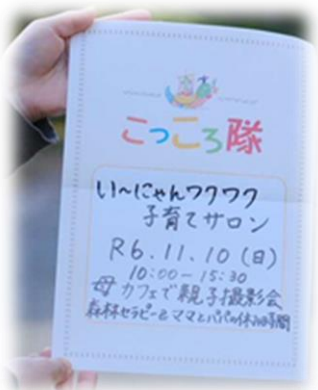 こっころ隊
い〜にゃんワクワク
子育てサロン
R6.11.10(日)
10:00-15:30
母カフェで親子撮影会
森林セラピーとママとパパの休み時間